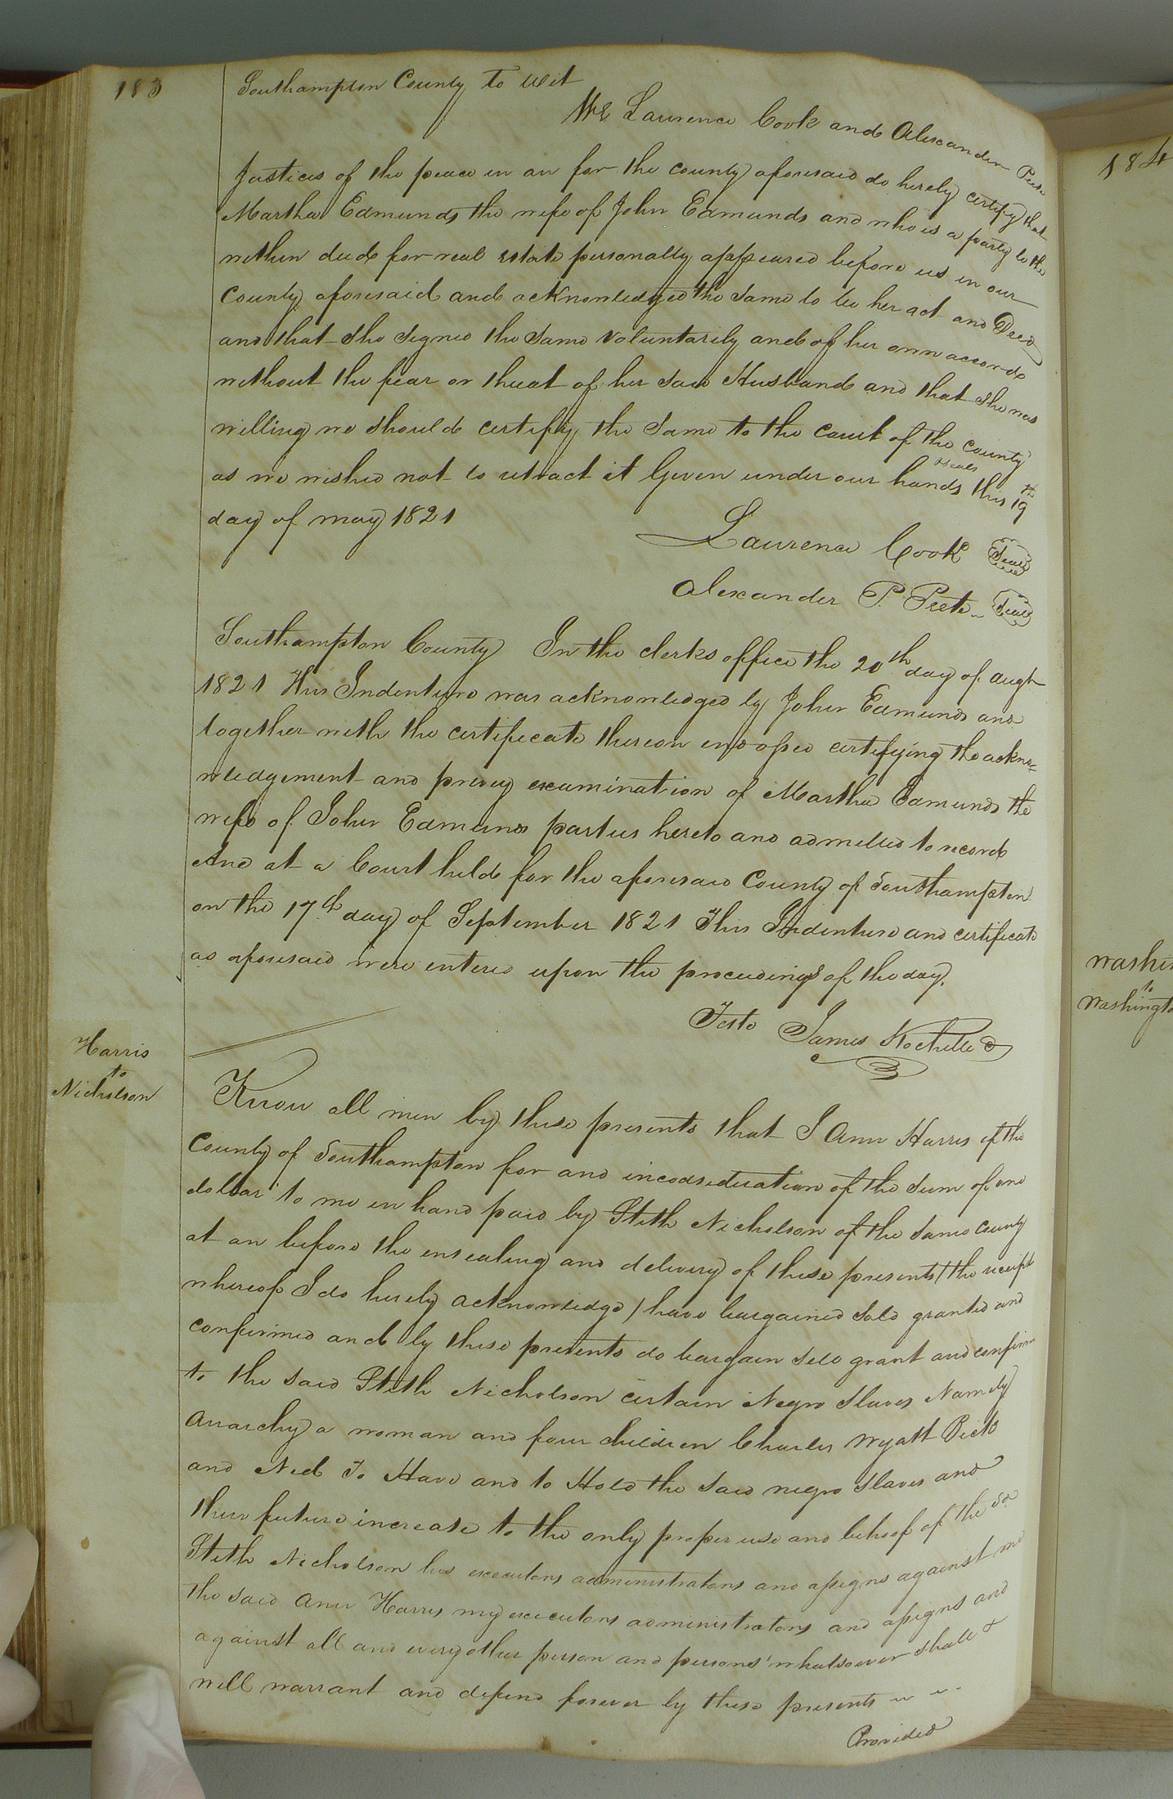 183
Southampton County To Wit
We Laurence Cook and Alexander Peete
Justices of the peace in an for the county aforesaid do hereby certify that
Martha Edmunds the wife of John Edmunds and who is a party to the
within deed for real estate personally appeared before us in our
County aforesaid and acknowledged the same to be her act and Deed
and that she signed the same voluntarily and of her own accord
without the fear or threat of her said Husband and that she was
willing we should certify the same to the court of the county
as we wished not to retract it Given under our hands & seals this 19th
day of may 1821
Laurence Cook Seal
Alexander P. Peete Seal
Southampton County In the clerks office the 20th day of Augt
1821 This Indenture was acknowledged by John Edmunds and
together with the certificate thereon endorsed certifying the ackno-
wledgement and privey examination of Martha Edmunds the
wife of John Edmunds parties hereto and admitted to record
And at a Court held for the aforesaid County of Southampton
on the 17th day of September 1821 This Indenture and certificate
as aforesaid were entered upon the proceedings of the day.
Teste James Rochelle
Harris
to
Nicholson
Know all men by these presents that I Ann Harris of the
County of Southampton for and in consideration of the sum of one
dollar to me in hand paid by Stith Nicholson of the same county
at an before the ensealing and delivery of these presents (the receipt
whereof I do hereby acknowledge) have bargained sold granted and
confirmed and by these presents do bargain sell grant and confirm
to the said Stith Nicholson certain Negro Slaves Namely
Anarchy a woman and four children Charles Wyatt Dick
and Ned To Have and to Hold the said negro slaves and
their future increase to the only proper use and behoof of the sd
Stith Nicholson his executors administrators and assigns against me
the said Ann Harris my executors administrators and assigns and
against all and every other person and persons whatsoever shall &
will warrant and defend forever by these presents
Provided
184
Washin
to
Washingto